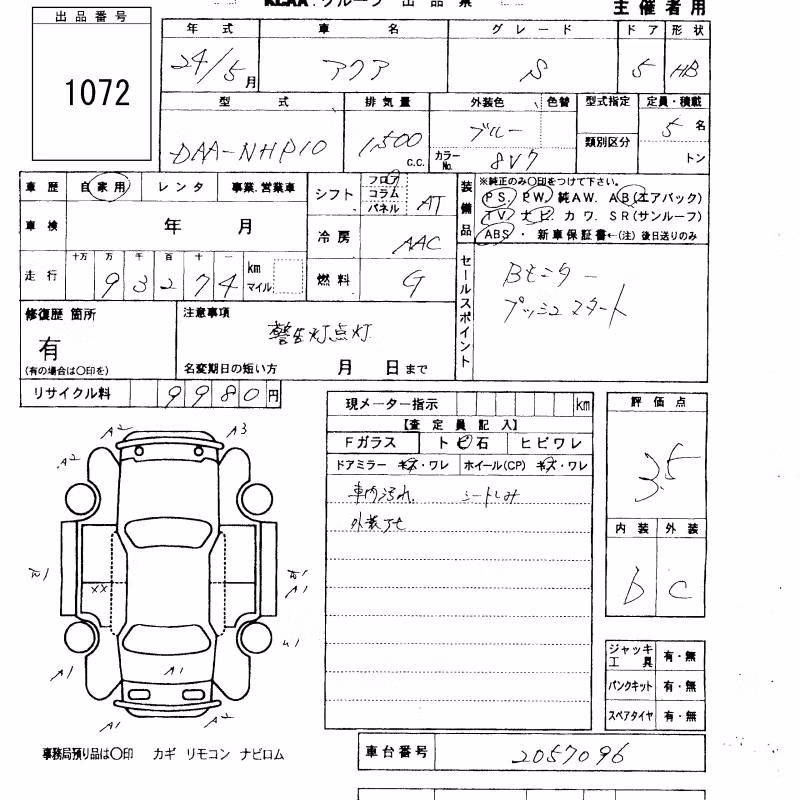 KCAA.グループ 出品票
主催者用
出品番号
1072
年式 車名 グレード ドア 形状
24/5月 アクア S 5 HB
型式 排気量 外装色 色替 型式指定 定員・積載
DAA-NHP10 1,500 c.c. ブルー 類別区分 5名
カラーNo. 8V7 トン
車歴 自家用 レンタ 事業.営業車
シフト フロア コラム パネル AT
車検 年 月
冷房 AAC
走行 十万 万 千 百 十 一
93274 km マイル
燃料 G
装備品
※純正のみ〇印をつけて下さい。
PS. PW. 純AW. AB(エアバック)
TV ナビ カワ. SR(サンルーフ)
ABS・ 新車保証書←(注) 後日送りのみ
セールスポイント
Bモニター
プッシュスタート
修復歴 箇所
有
(有の場合は〇印を)
注意事項
警告灯点灯
名変期日の短い方 月 日まで
リサイクル料 9980円
現メーター指示 km
【査定員記入】
Fガラス トビ石 ヒビワレ
ドアミラー キズ・ワレ ホイール(CP) キズ・ワレ
車内汚れ シートしみ
外装アセ
評価点
3.5
内装 外装
b C
A2 A3
A2
XX
A1
A1 A1
A1 A2
ジャッキ工具 有・無
パンクキット 有・無
スペアタイヤ 有・無
事務局預り品は〇印 カギ リモコン ナビロム
車台番号 2057096